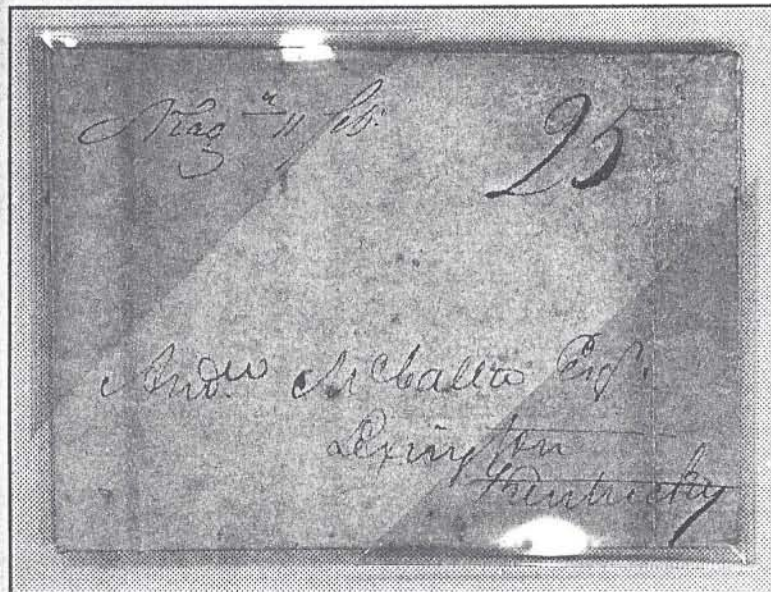 Niag^a 11 feb. 25
And^w McCalla Esq^r.
Lexington
Kentucky